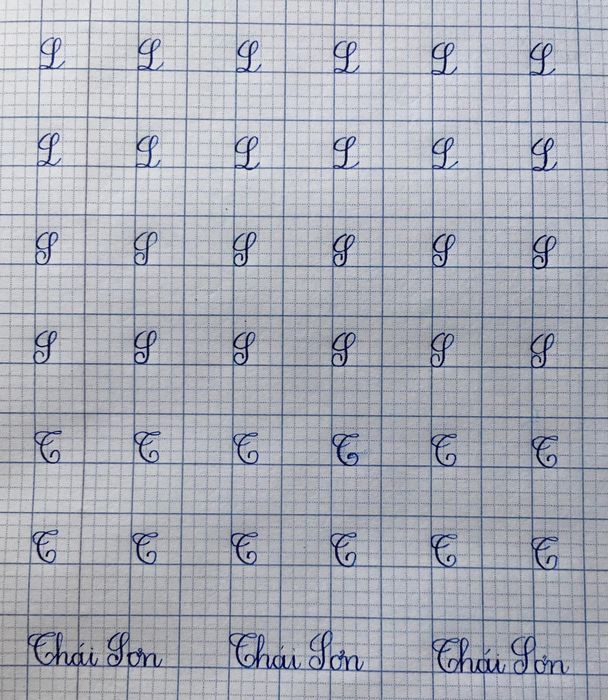 L L L L L L
L L L L L L
S S S S S S
S S S S S S
T T T T T T
T T T T T T
Thái Sơn Thái Sơn Thái Sơn